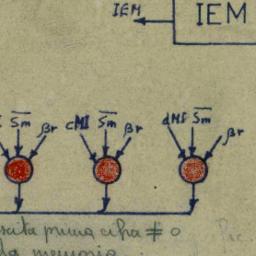 IEM IEM
S̅m̅ βr cMI S̅m̅ βr dMI S̅m̅ βr
prima cifra ≠ 0
memoria